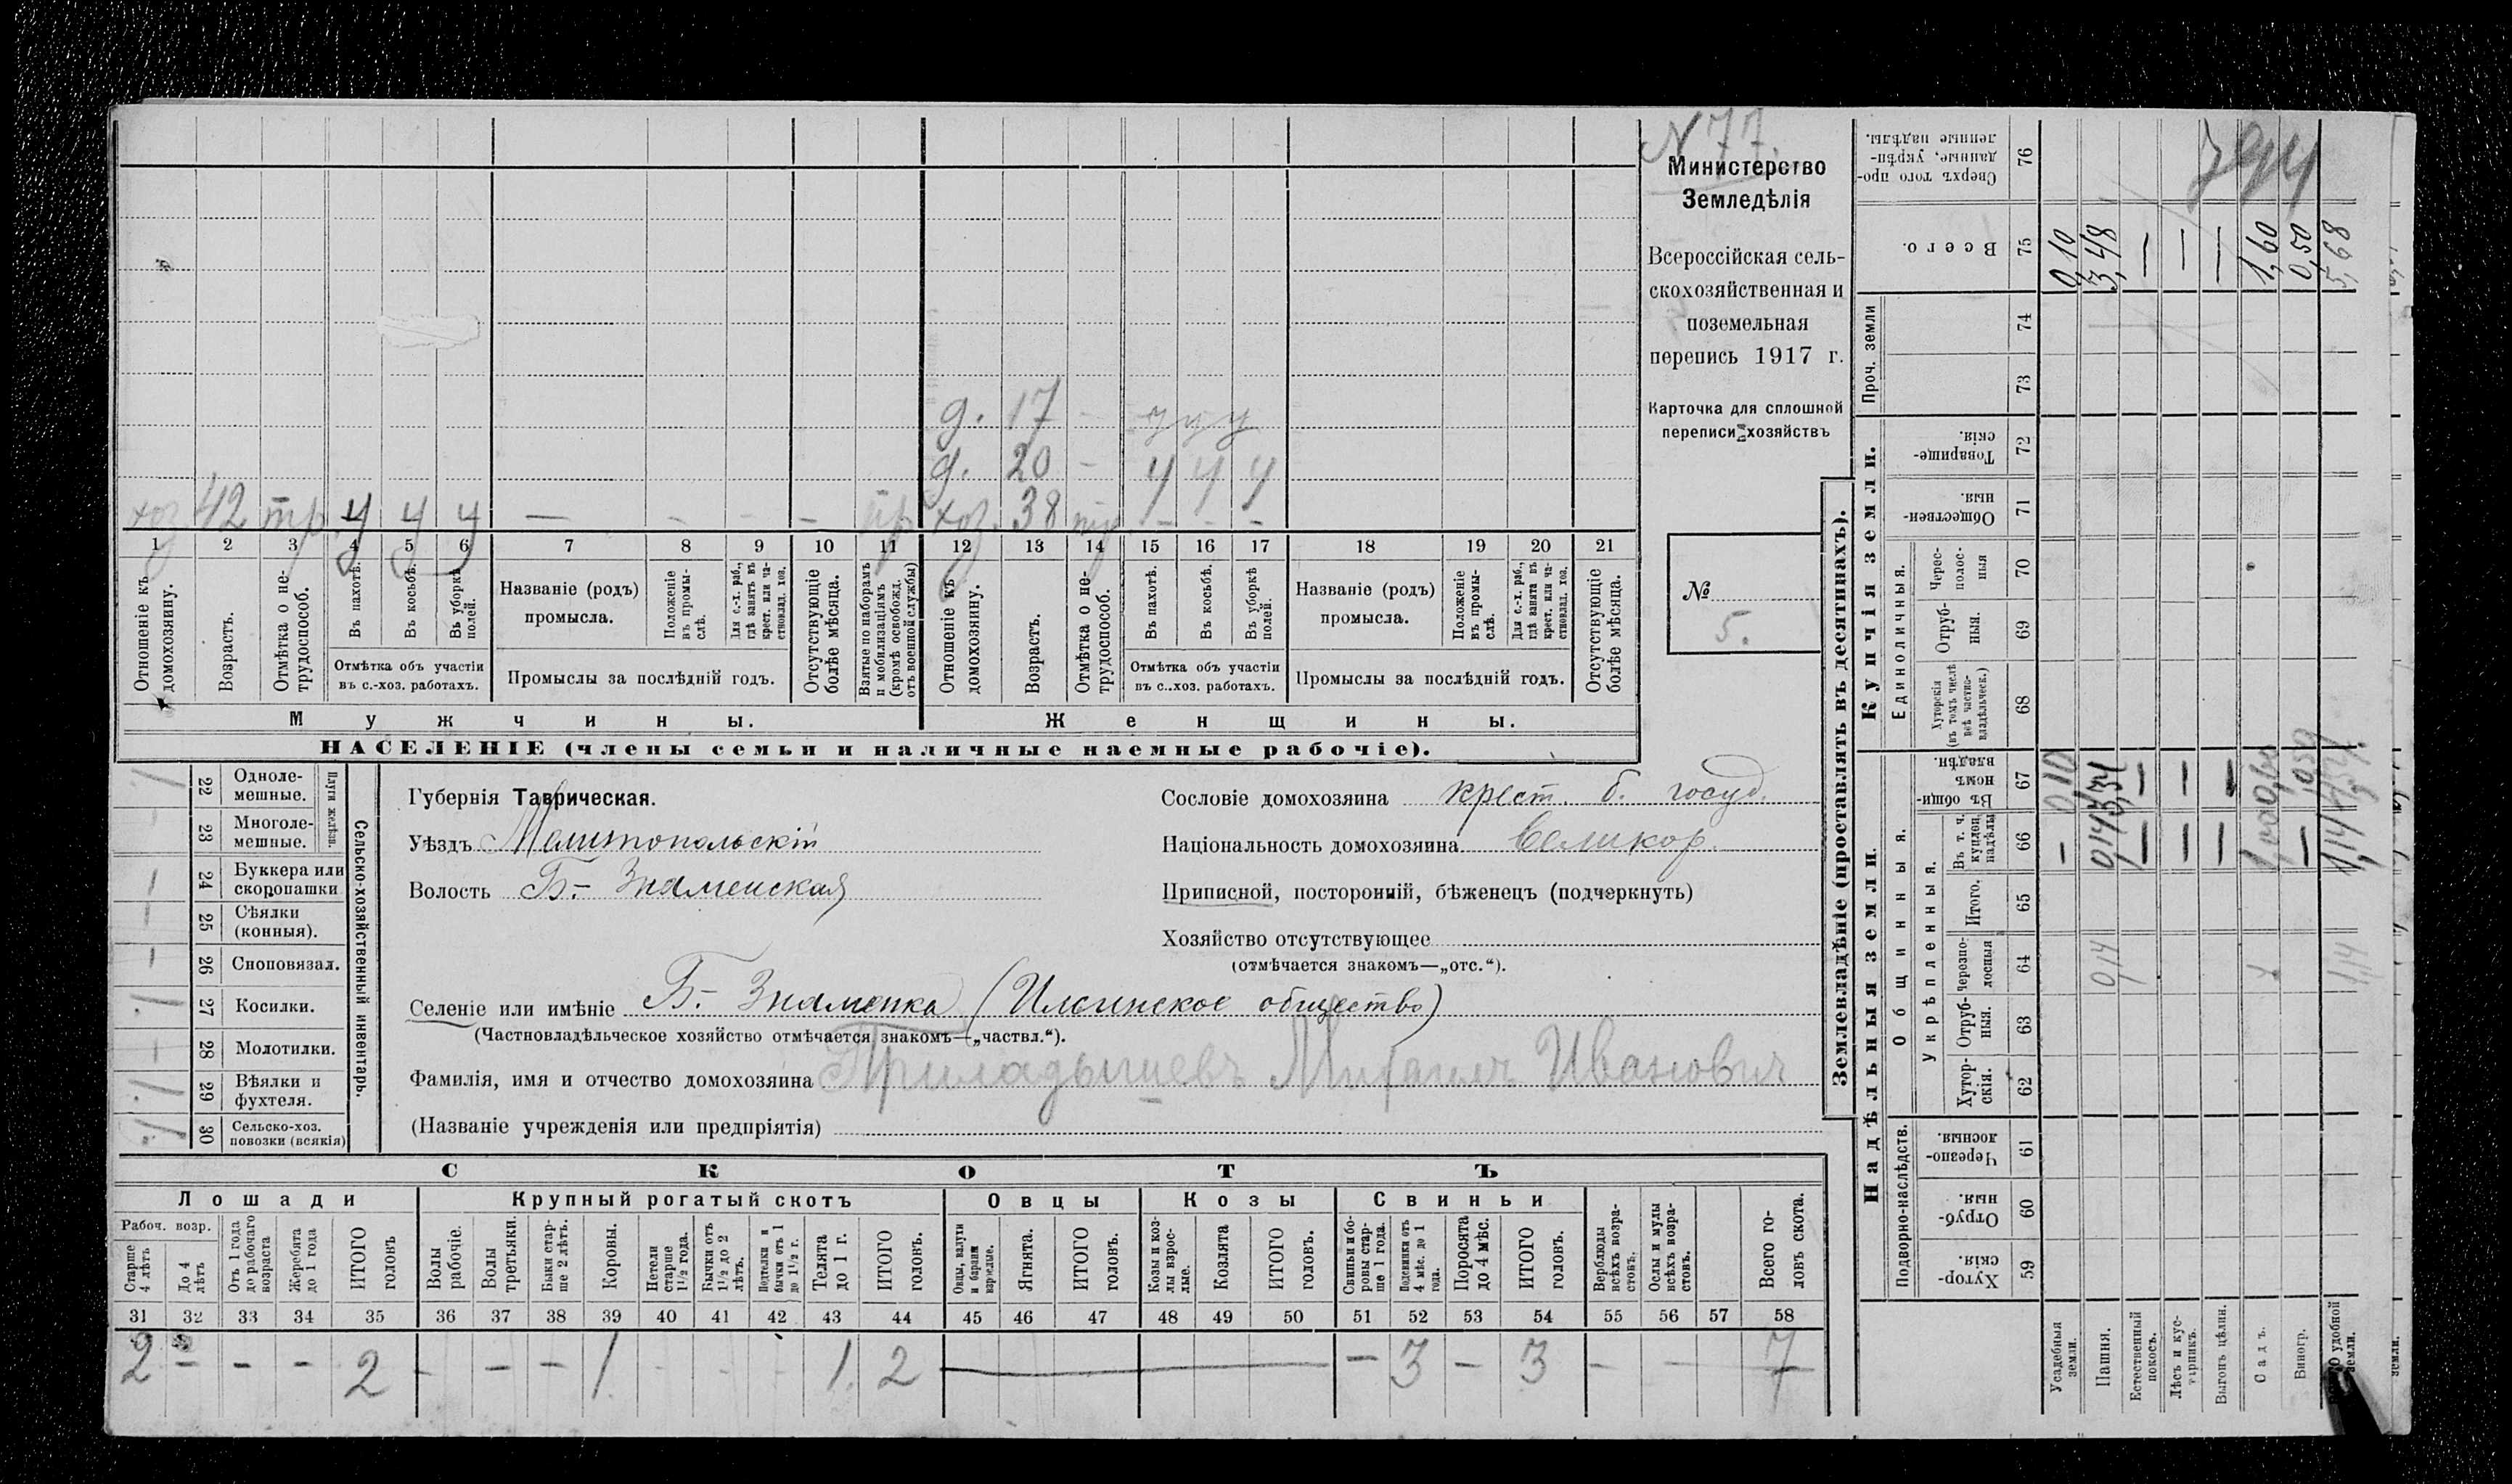 N 77.
Министерство
Земледѣлія
Всероссійская сель-
скохозяйственная и
поземельная
перепись 1917 г.
Карточка для сплошной
переписи хозяйствъ
№
5.
д. 17 - у у у
д. 20 - у у у
хоз 42 тр. у у у — - - - пр хоз. 38 тр - - -
1 2 3 4 5 6 7 8 9 10 11 12 13 14 15 16 17 18 19 20 21
Отношеніе къ домохозяину.
Возрастъ.
Отмѣтка о не-трудоспособ.
Въ пахотѣ.
Въ косьбѣ.
Въ уборкѣ полей.
Отмѣтка объ участіи
въ с.-хоз. работахъ.
Названіе (родъ)
промысла.
Положеніе въ промы-слѣ.
Для с.-х. раб., гдѣ занятъ въ крест. или ча-стновлад. хоз.
Промыслы за послѣдній годъ.
Отсутствующіе болѣе мѣсяца.
Взятые по наборамъ и мобилизаціямъ (кромѣ освобожд. отъ военной службы)
Отношеніе къ домохозяину.
Возрастъ.
Отмѣтка о не-трудоспособ.
Въ пахотѣ.
Въ косьбѣ.
Въ уборкѣ полей.
Отмѣтка объ участіи
въ с..хоз. работахъ.
Названіе (родъ)
промысла.
Положеніе въ промы-слѣ.
Для с.-х. раб., гдѣ занятъ въ крест. или ча-стновлад. хоз.
Промыслы за послѣдній годъ.
Отсутствующіе болѣе мѣсяца.
Мужчины.
Женщины.
НАСЕЛЕНІЕ (члены семьи и наличные наемные рабочіе).
Сельско-хозяйственный инвентарь.
Плуги желѣзн.
22 Одноле-мешные. 1
23 Многоле-мешные. -
24 Буккера или скоропашки -
25 Сѣялки (конныя). -
26 Сноповязал. -
27 Косилки. 1
28 Молотилки. -
29 Вѣялки и фухтеля. 1
30 Сельско-хоз. повозки (всякія) 1
Губернія Таврическая.
Уѣздъ Мелитопольскій
Волость Б.- Знаменская
Сословіе домохозяина крест. б. госуд.
Національность домохозяина Великор.
Приписной, посторонній, бѣженецъ (подчеркнуть)
Хозяйство отсутствующее
(отмѣчается знакомъ—„отс.“).
Селеніе или имѣніе Б.- Знаменка (Ильинское общество)
(Частновладѣльческое хозяйство отмѣчается знакомъ—„частвл.“).
Фамилія, имя и отчество домохозяина Приладышевъ Михаилъ Ивановичъ
(Названіе учрежденія или предпріятія)
СКОТЪ
Лошади
Крупный рогатый скотъ
Овцы
Козы
Свиньи
Рабоч. возр.
Старше 4 лѣтъ
До 4 лѣтъ
Отъ 1 года до рабочаго возраста
Жеребята до 1 года
ИТОГО головъ
Волы рабочіе.
Волы третьяки.
Быки стар-ше 2 лѣтъ.
Коровы.
Нетели старше 1½ года.
Бычки отъ 1½ до 2 лѣтъ.
Подтелки и бычки отъ 1 до 1½ г.
Телята до 1 г.
ИТОГО головъ.
Овцы, валухи и бараны взрослые.
Ягнята.
ИТОГО головъ.
Козы и коз-лы взрос-лые.
Козлята
ИТОГО головъ.
Свиньи и бо-ровы стар-ше 1 года.
Подсвинки отъ 4 мѣс. до 1 года.
Поросята до 4 мѣс.
ИТОГО головъ.
Верблюды всѣхъ возра-стовъ.
Ослы и мулы всѣхъ возра-стовъ.
Всего го-ловъ скота.
31 32 33 34 35 36 37 38 39 40 41 42 43 44 45 46 47 48 49 50 51 52 53 54 55 56 57 58
2 - - - 2 - - - 1 - - - 1. 2 — - 3 - 3 - - 7
Землевладѣніе (проставлять въ десятинахъ).
Надѣльныя земли.
Купчія земли.
Проч. земли
Подворно-наслѣдств.
Общинныя.
Укрѣпленныя.
Единоличныя.
Хутор-скія 59
Отруб-ныя. 60
Черезпо-лосныя. 61
Хутор-скія. 62
Отруб-ныя. 63
Черезпо-лосныя 64
Итого. 65
Въ т. ч. куплен. надѣлы 66
Въ общи-номъ владѣн. 67
Хуторскія (въ томъ числѣ всѣ частно-владѣльческ.) 68
Отруб-ныя. 69
Черес-полос-ныя 70
Обществен-ныя. 71
Товарище-скія. 72
73
74
Всего. 75
Сверхъ того про-данные, укрѣп-ленные надѣлы. 76
794
Усадебныя земли. - 0,10 0,10
Пашня. 0,14 0,14 3,34 3,48
Естественный покосъ. - - -
Лѣсъ и кус-тарникъ. - - -
Выгонъ цѣлин. - - -
Садъ. 1 1,00 0,60 1,60
Виногр. - 0,50 0,50
удобной земли. 1,14 1,14 5,68
земли.